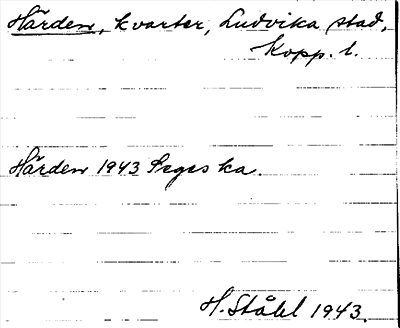 Härden, kvarter, Ludvika stad,
Kopp. l.
Härden 1943 Seges ka.
H. Ståhl 1943.